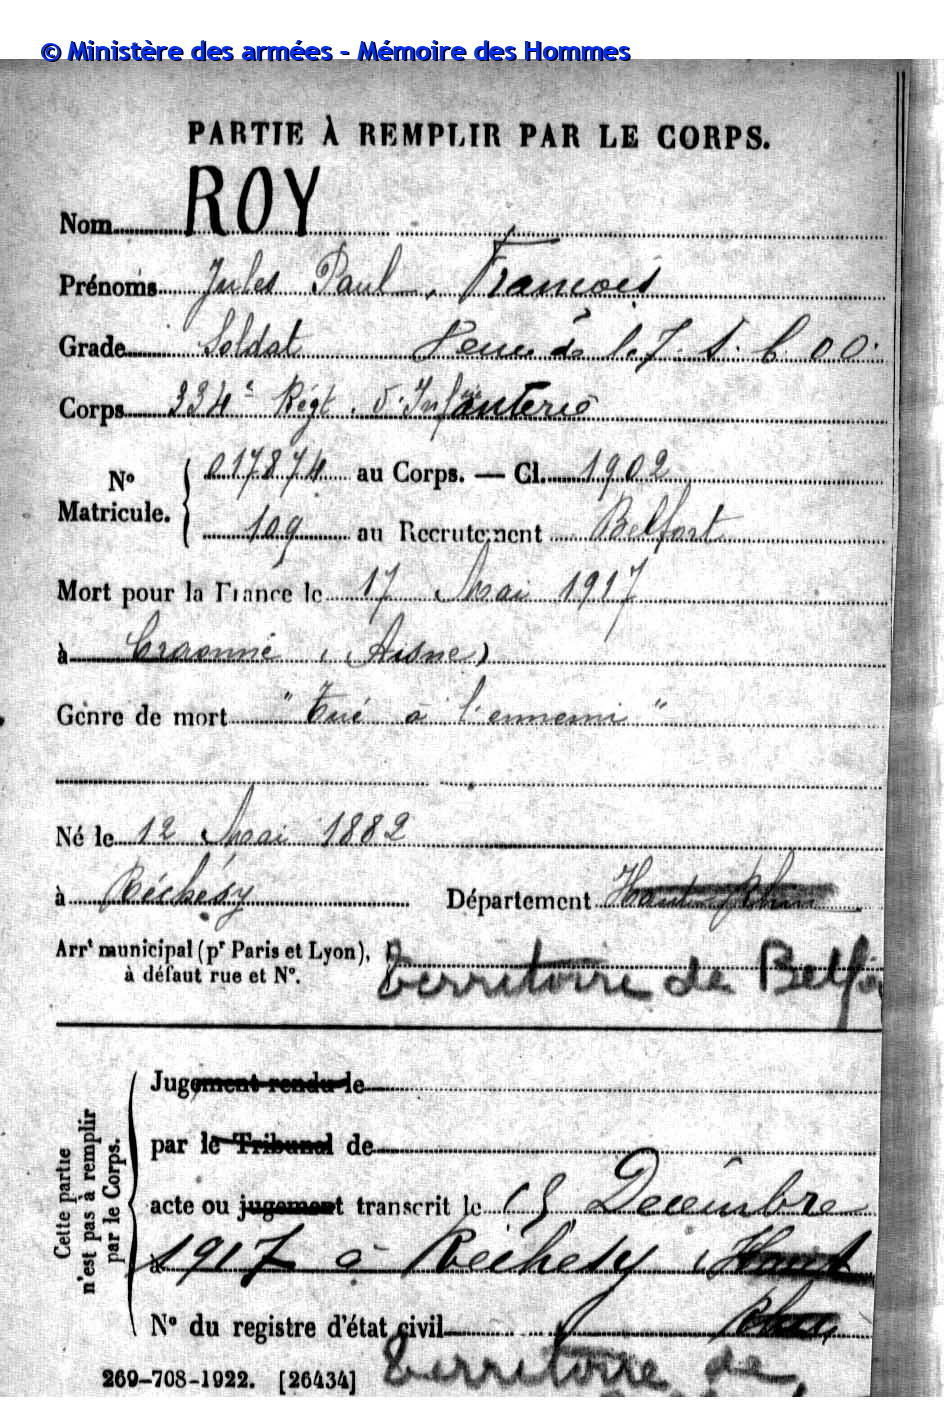 © Ministère des armées - Mémoire des Hommes
PARTIE À REMPLIR PAR LE CORPS.
Nom ROY
Prénoms Jules Paul, Francois
Grade Soldat
Corps 334e Régt. d'Infanterie
No Matricule. 017874 au Corps. — Cl. 1902
109 au Recrutement Belfort
Mort pour la France le 17 Mai 1917
à Craonne (Aisne)
Genre de mort "Tué à l'ennemi"
Né le 12 Mai 1882
à Réchésy Département Haut Rhin
Arrt municipal (pr Paris et Lyon),
à défaut rue et No.
Territoire de Belfo
Cette partie
n'est pas à remplir
par le Corps.
Jugement rendu le
par le Tribunal de
acte ou jugement transcrit le Décembre
à 1917 à Réchésy (Haut
No du registre d'état civil Rhin
Territoire de
269-708-1922. [26434]